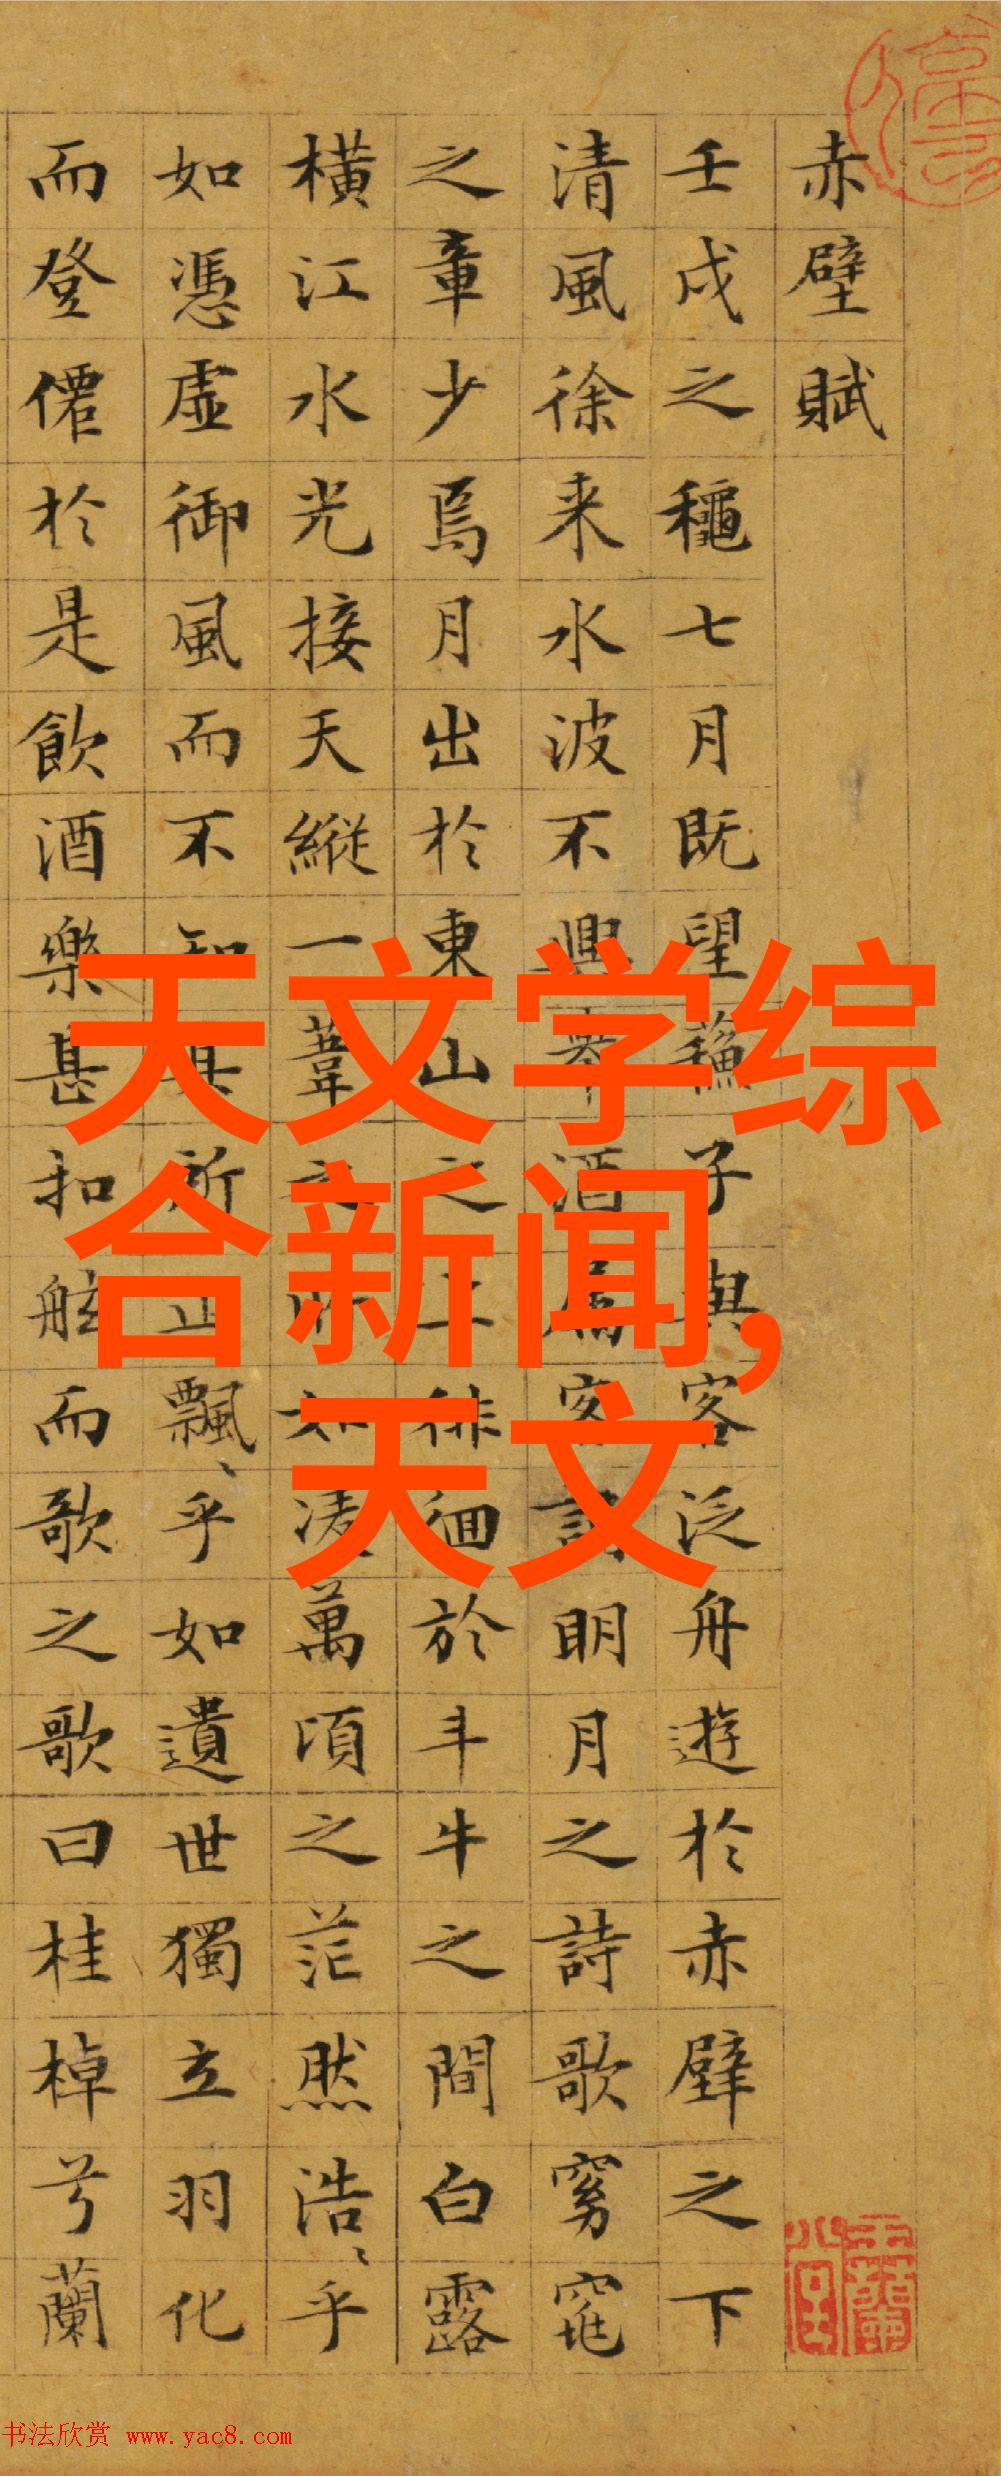 赤壁賦
壬戌之龝七月既望蘓子與客泛舟遊於赤壁之下
清風徐来水波不興舉酒屬客誦明月之詩歌窈窕
之章少焉月出於東山之上徘徊於斗牛之間白露
橫江水光接天縱一葦之所如淩萬頃之茫然浩〻乎
如憑虛御風而不知其所止飄〻乎如遺世獨立羽化
而登僊於是飲酒樂甚扣舷而歌之歌曰桂棹兮蘭
天文学综
合新闻,
天文
书法欣赏 www.yac8.com